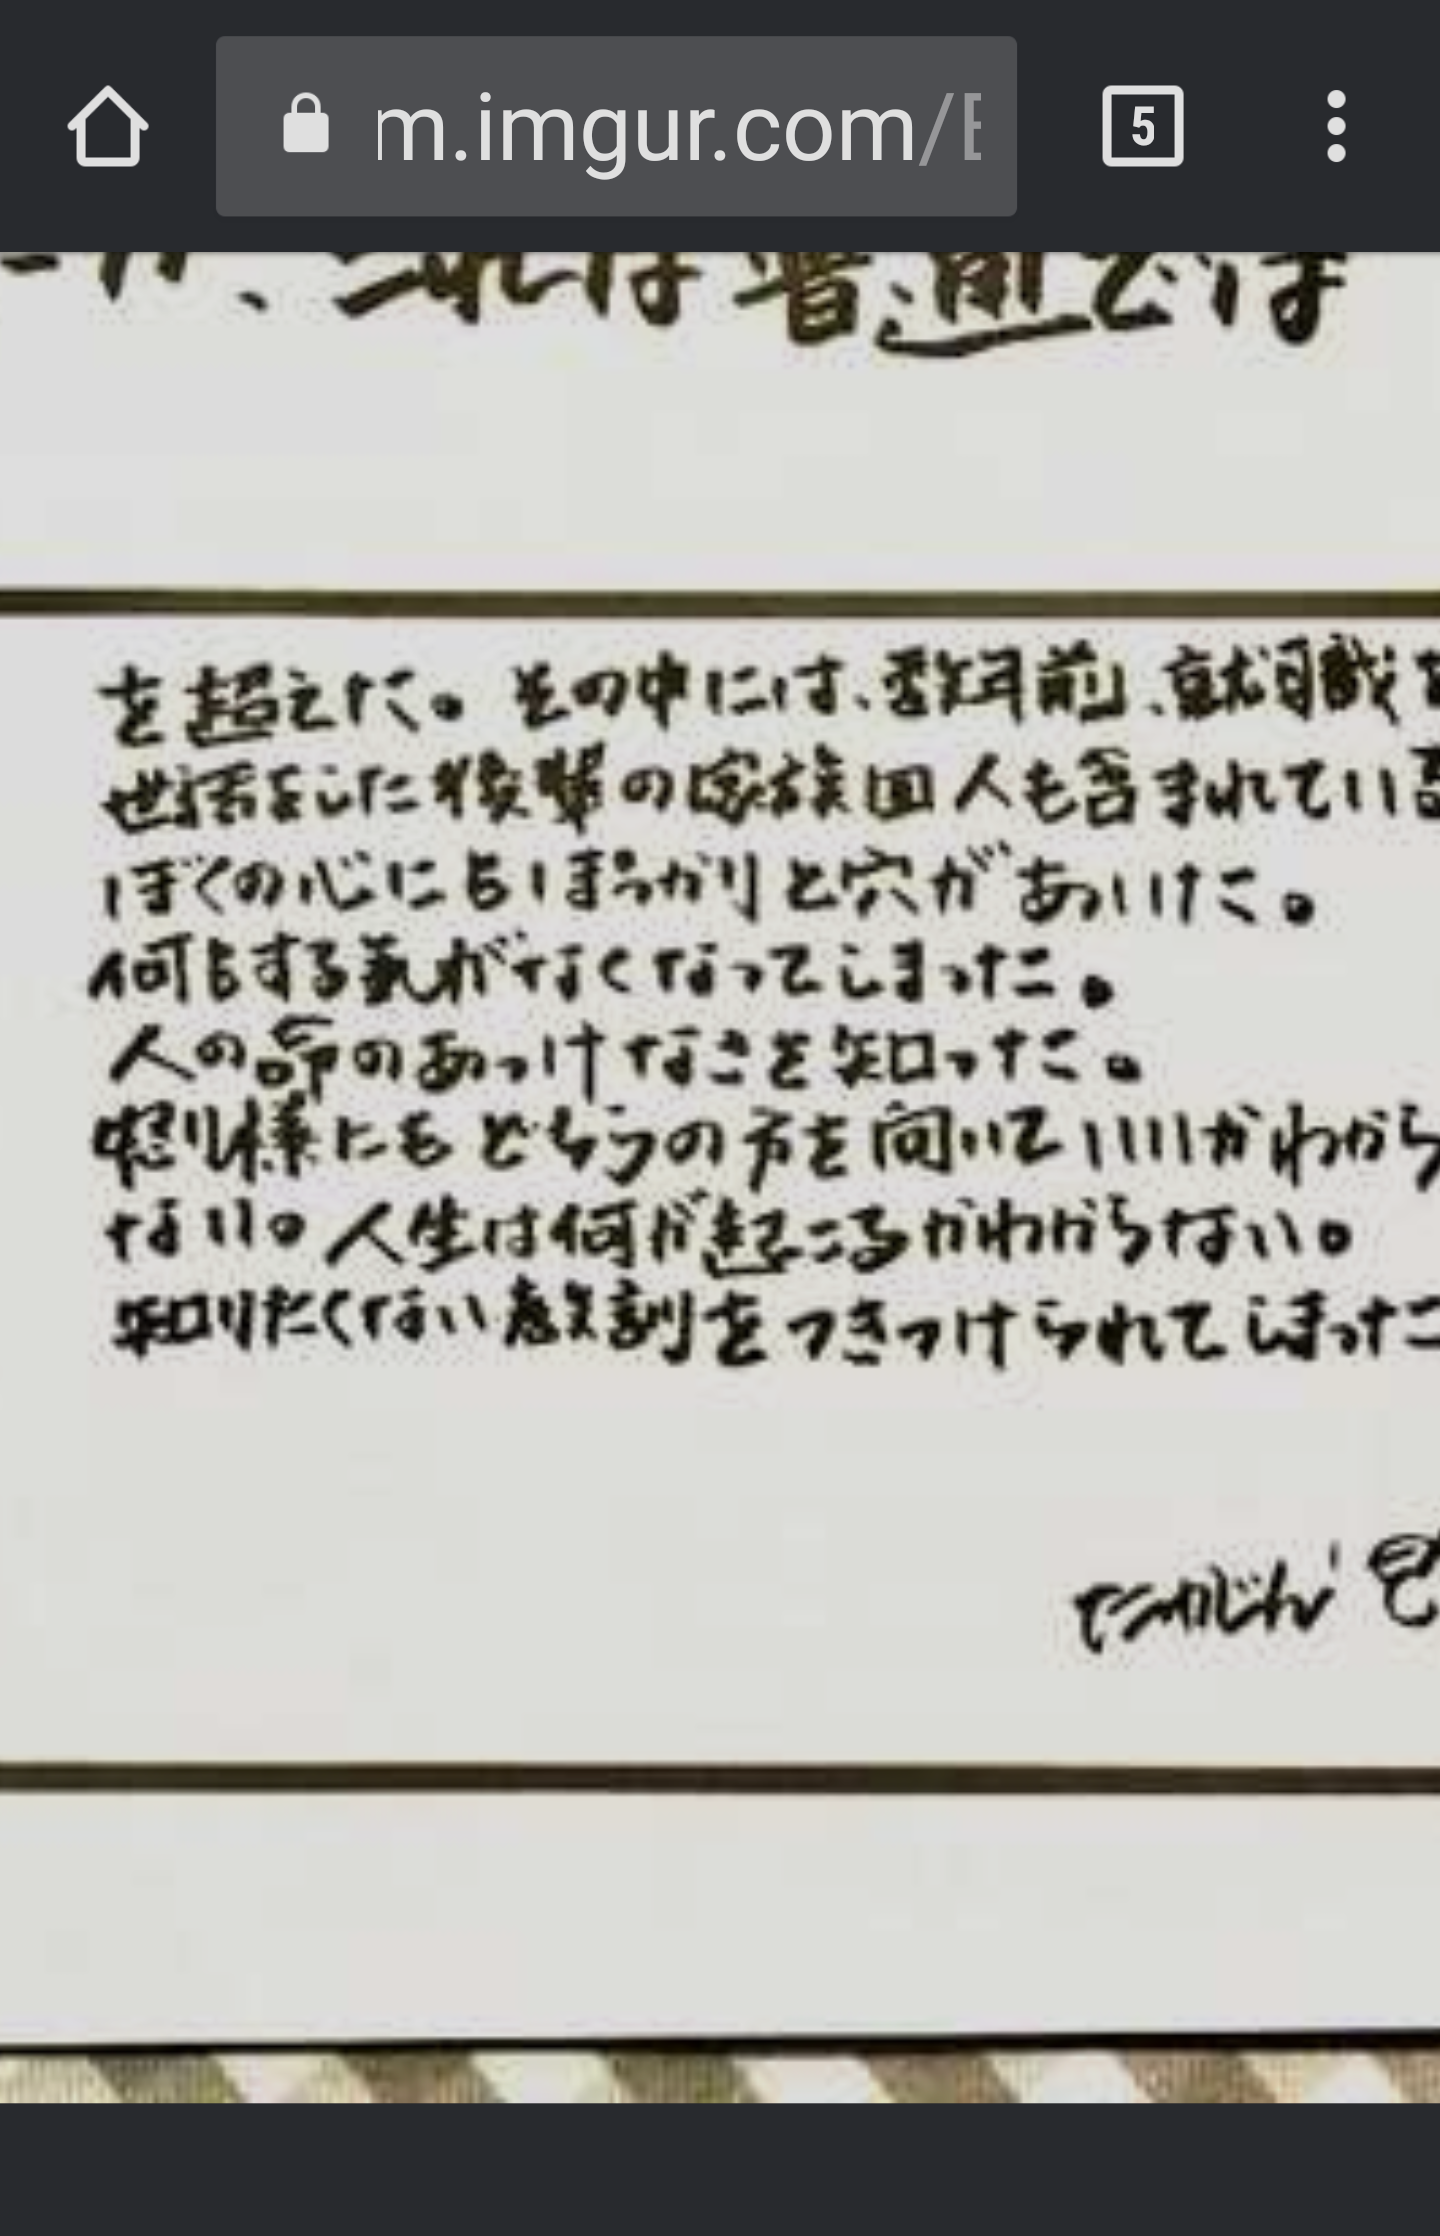 m.imgur.com/
5
が、これは普通では
を超えた。その中には、数年前、就職
世話をした後輩の家族四人も含まれている
ぼくの心にもぽっかりと穴があいた。
何もする気がなくなってしまった。
人の命のあっけなさを知った。
怒り様にもどちらの方を向いていいかわから
ない。人生は何が起こるかわからない。
知りたくない教訓をつきつけられてしまった